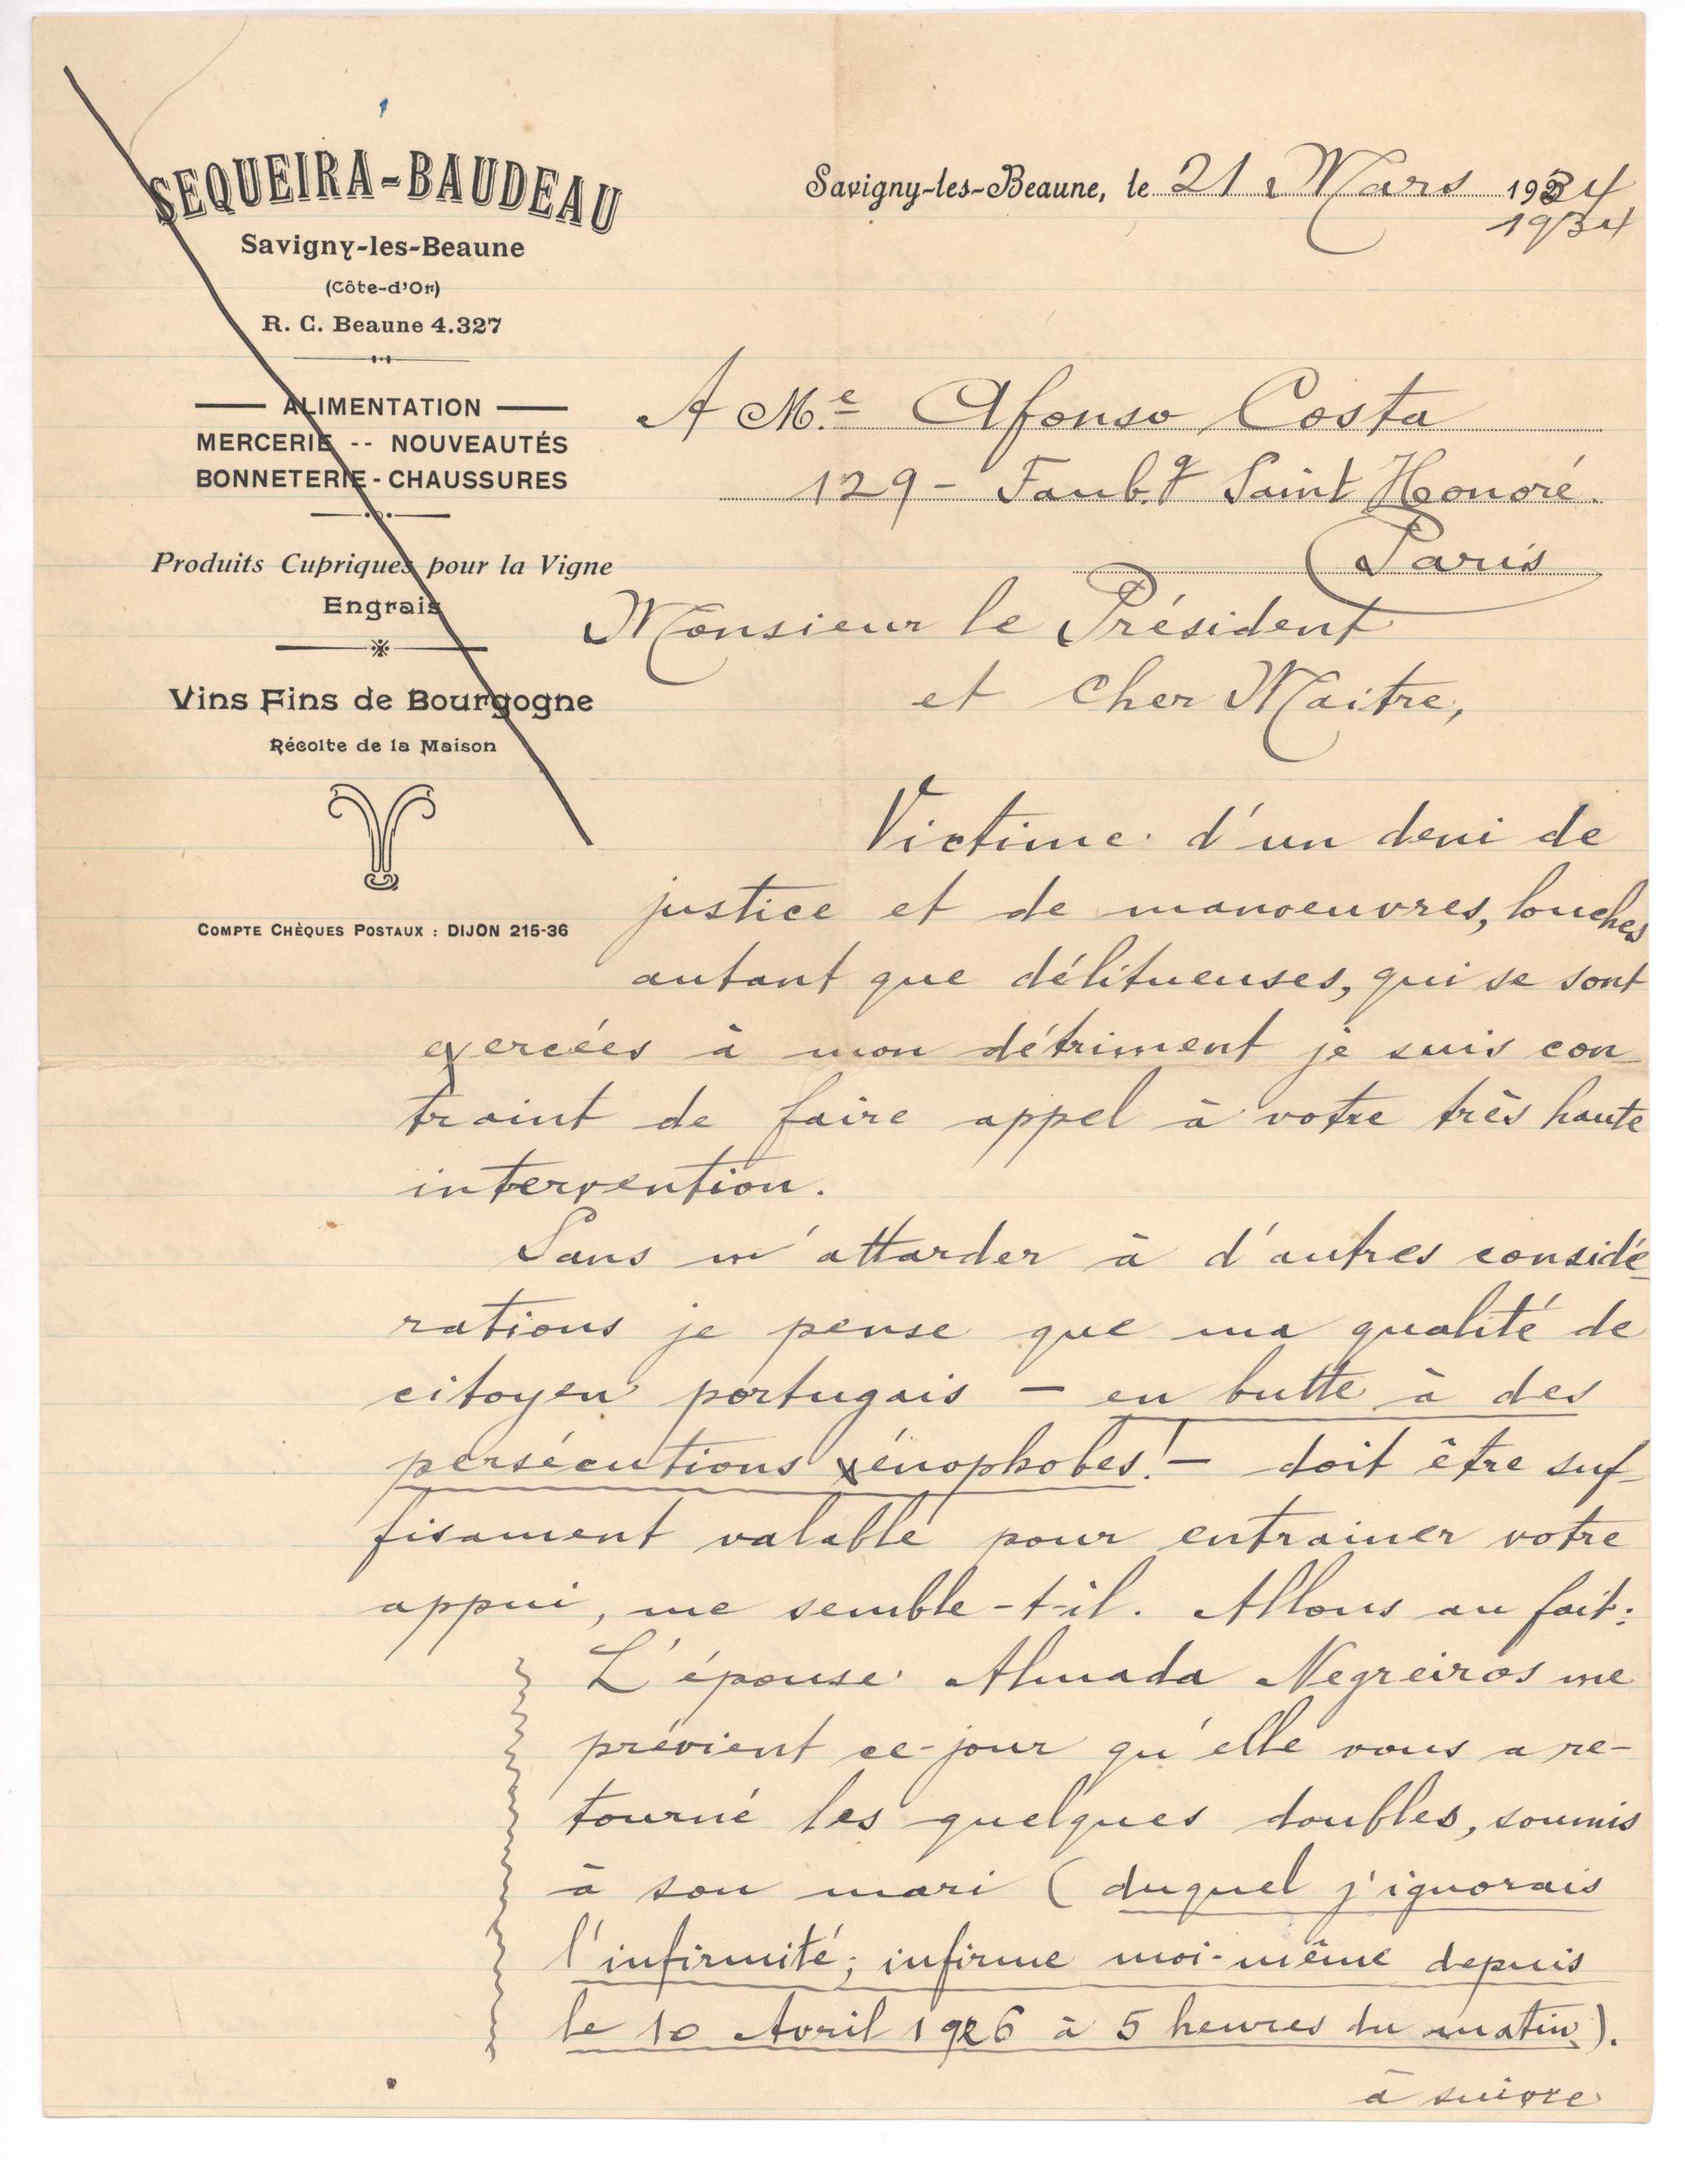 SEQUEIRA-BAUDEAU
Savigny-les-Beaune
(Côte-d'Or)
R. C. Beaune 4.327
ALIMENTATION
MERCERIE -- NOUVEAUTÉS
BONNETERIE - CHAUSSURES
Produits Cupriques pour la Vigne
Engrais
Vins Fins de Bourgogne
Récolte de la Maison
COMPTE CHÈQUES POSTAUX : DIJON 215-36
Savigny-les-Beaune, le 21 Mars 1934
1934
A M.e Afonso Costa
129 - Faub.g Saint Honoré.
Paris
Monsieur le Président
et Cher Maitre,
Victime d'un deni de
justice et de manoeuvres, louches
autant que délituenses, qui se sont
exercées à mon détriment je suis con-
traint de faire appel à votre très haute
intervention.
Sans m'attarder à d'autres considé-
rations je pense que ma qualité de
citoyen portugais - en butte à des
persécutions xénophobes! - doit être suf-
fisament valable pour entrainer votre
appui, me semble-t-il. Allons au fait:
L'épouse Almada Negreiros me
prévient ce-jour qu'elle vous a re-
tourné les quelques doubles, soumis
à son mari (duquel j'ignorais
l'infirmité; infirme moi-même depuis
le 10 Avril 1926 à 5 heures du matin).
à suivre